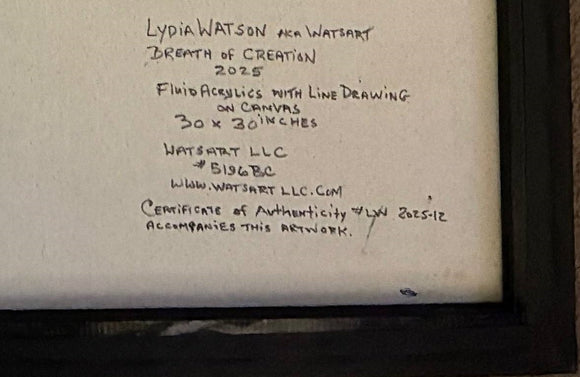 LYDIA WATSON AKA WATSART
BREATH OF CREATION
2025
FLUID ACRYLICS WITH LINE DRAWING
ON CANVAS
30 x 30 INCHES
WATSART LLC
#5196BC
WWW.WATSARTLLC.COM
CERTIFICATE of AUTHENTICITY #LW 2025-12
ACCOMPANIES THIS ARTWORK.